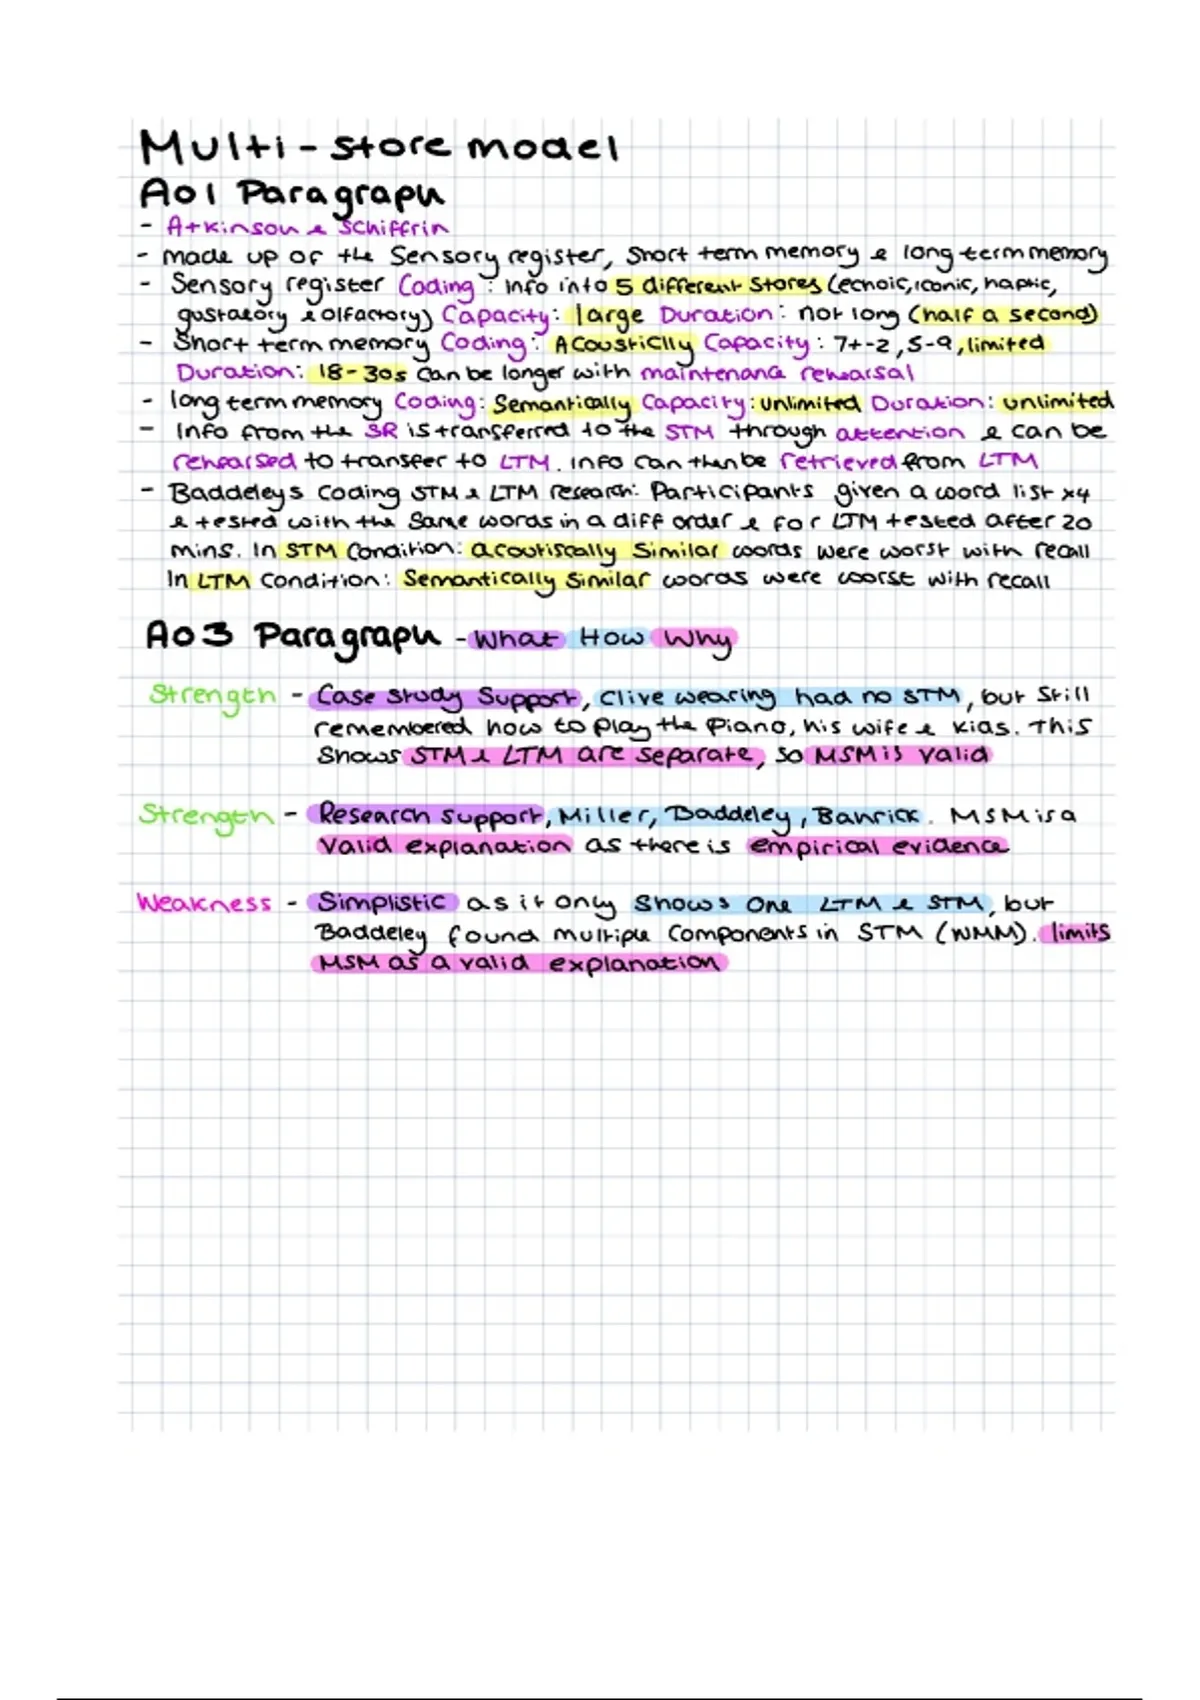 Multi-store model
AO1 Paragraph
- Atkinson & Schiffrin
- made up of the Sensory register, Short term memory & long term memory
- Sensory register Coding: Info into 5 different Stores (echoic, iconic, haptic,
gustatory & olfactory) Capacity: large Duration: not long (half a second)
- Short term memory Coding: Acousticlly Capacity: 7+-2, 5-9, limited
Duration: 18-30s can be longer with maintenance rehearsal
- long term memory Coding: Semantically Capacity: unlimited Duration: unlimited
- Info from the SR is transferred to the STM through attention & can be
rehearsed to transfer to LTM. info can then be retrieved from LTM
- Baddeleys Coding STM & LTM research: Participants given a word list x4
& tested with the Same words in a diff order & for LTM tested after 20
mins. In STM Condition: acoutiscally Similar words were worst with recall
In LTM Condition: Semantically Similar words were worst with recall
AO3 Paragraph - What How Why
Strength - Case Study Support, Clive wearing had no STM, but Still
remembered how to play the Piano, his wife & kids. This
Shows STM & LTM are Separate, so MSM is valid
Strength - Research Support, Miller, Baddeley, Bahrick. MSM is a
Valid explanation as there is empirical evidence
Weakness - Simplistic as it only Shows One LTM & STM, but
Baddeley found multiple Components in STM (WMM). limits
MSM as a valid explanation